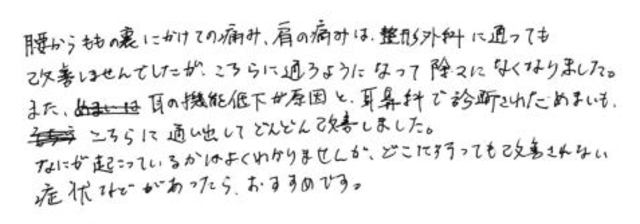 腰からももの裏にかけての痛み、肩の痛みは、整形外科に通っても
改善しませんでしたが、こちらに通うようになって除々になくなりました。
また、めまいは耳の機能低下が原因と、耳鼻科で診断されためまいも、
こちらに通い出してどんどん改善しました。
なにが起こっているかはよくわかりませんが、どこに行っても改善されない
症状などがあったら、おすすめです。